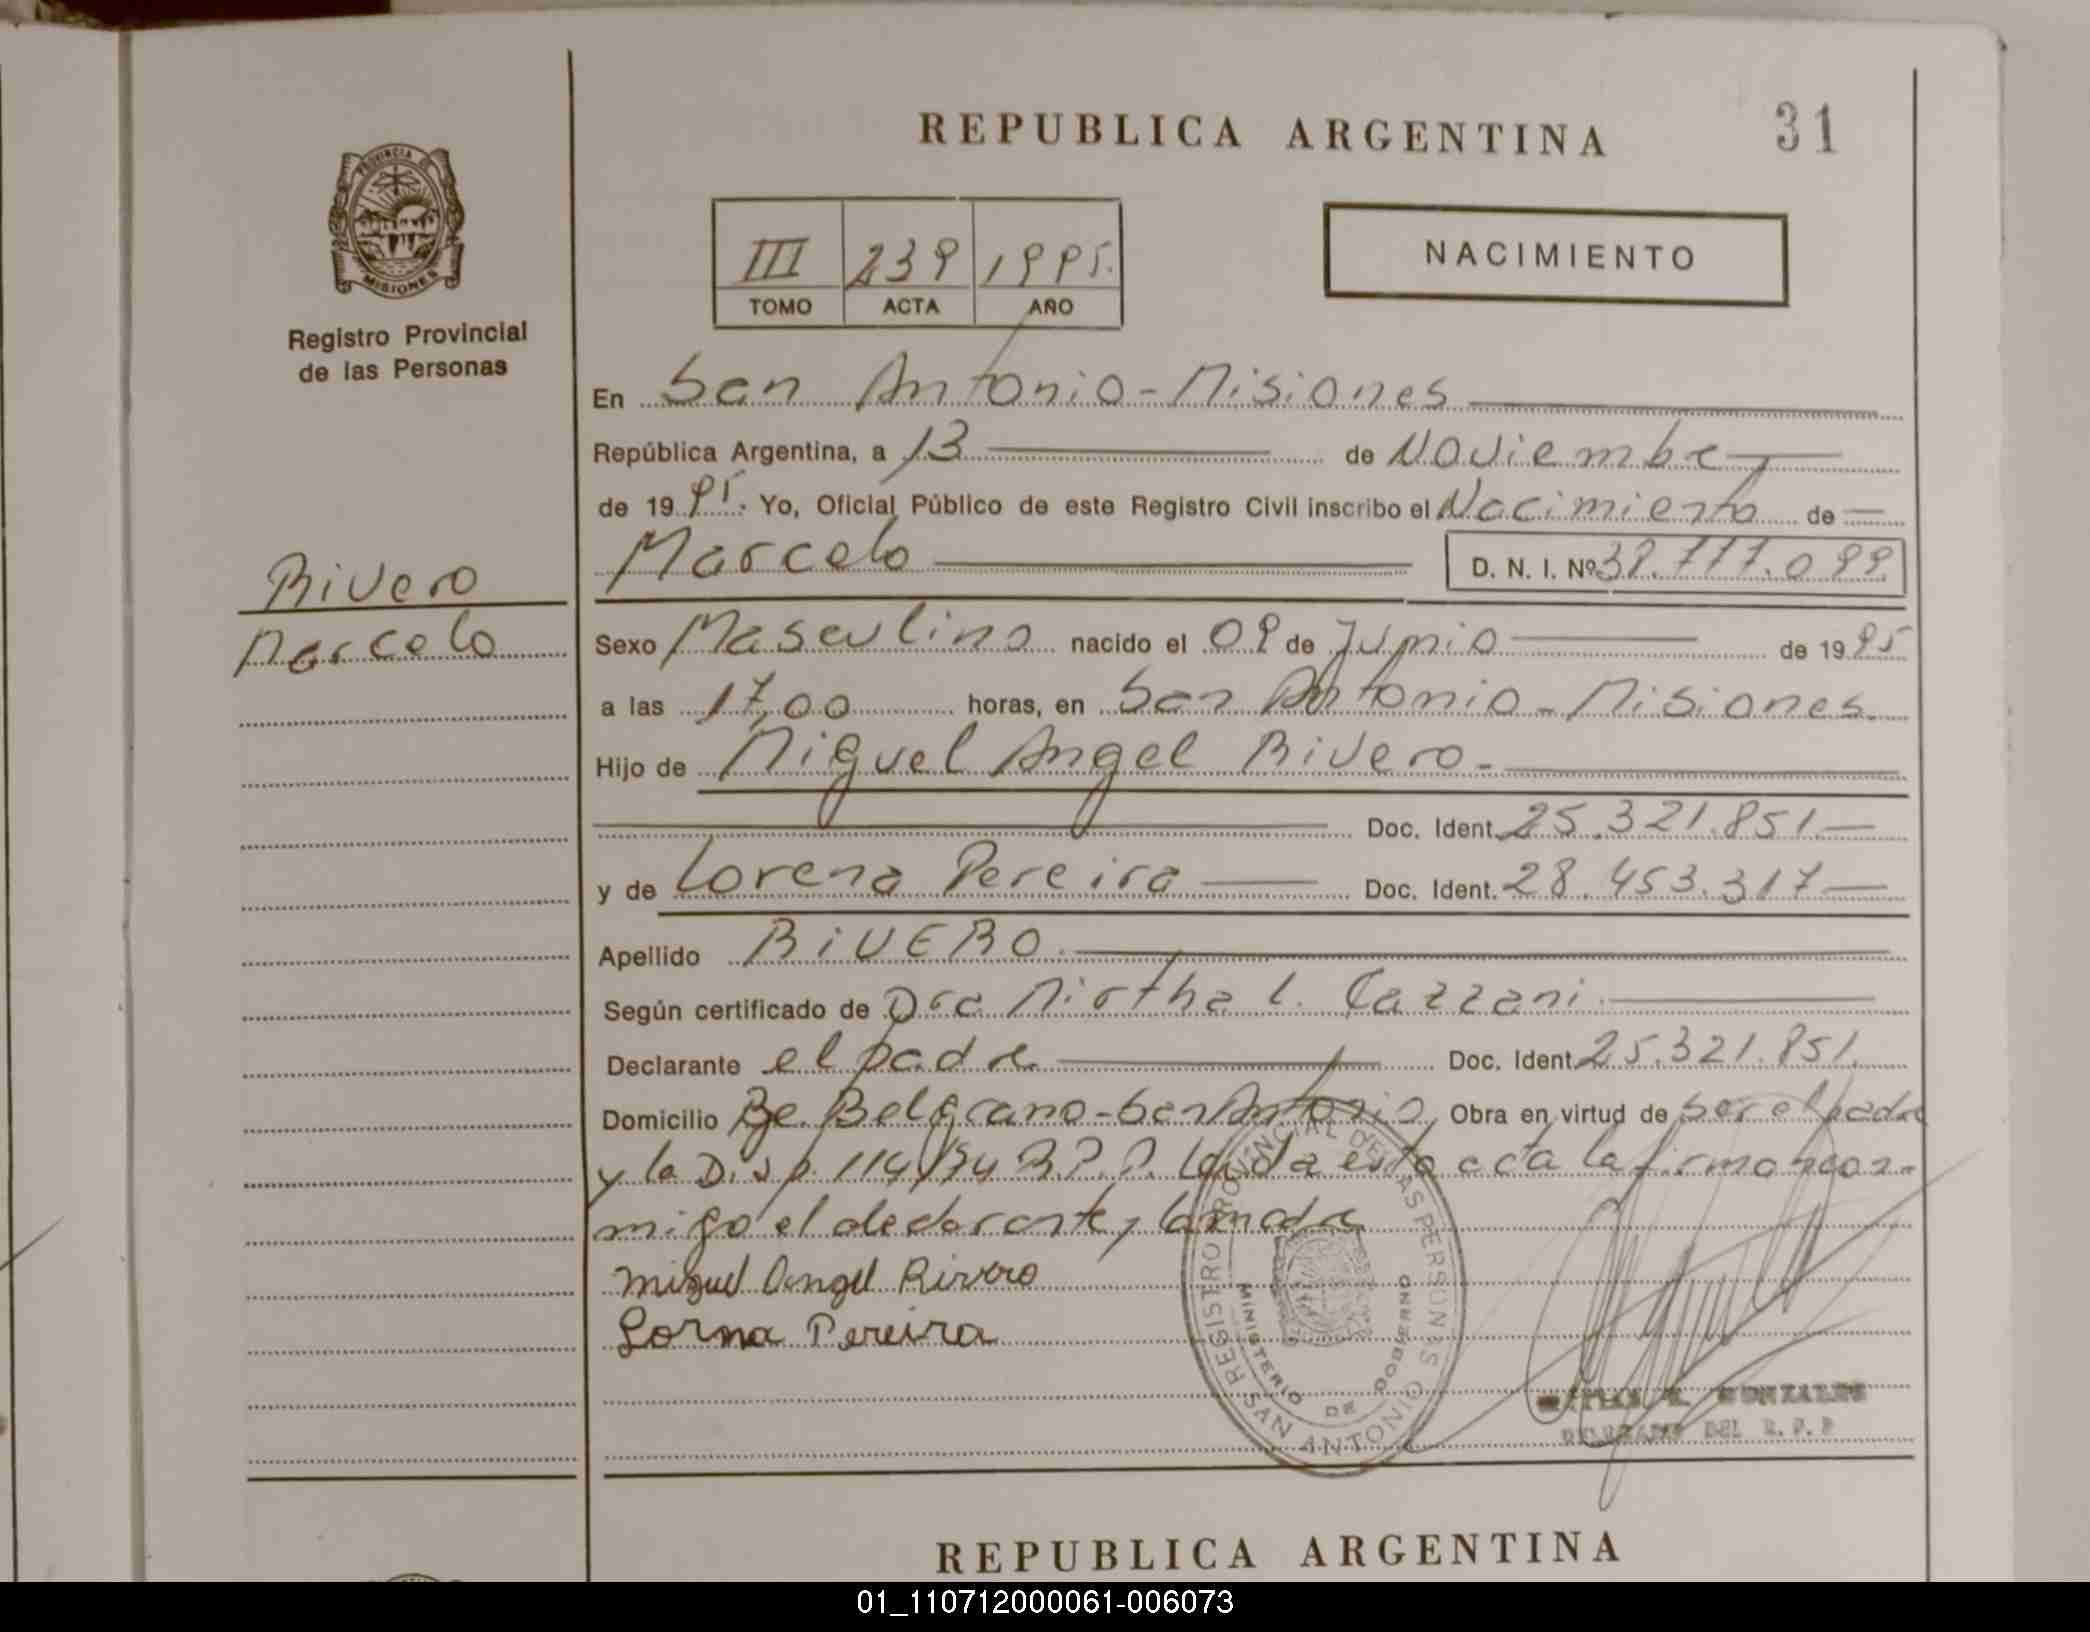 REPUBLICA ARGENTINA
31
PROVINCIA D
MISIONES
Registro Provincial
de las Personas
III 239 1995.
TOMO ACTA AÑO
NACIMIENTO
En San Antonio - Misiones
República Argentina, a 13 de Noviembre
de 1995. Yo, Oficial Público de este Registro Civil inscribo el Nacimiento de
Marcelo D. N. I. Nº 38.777.099
Rivero
Marcelo
Sexo Masculino nacido el 09 de Junio de 1995
a las 17,00 horas, en San Antonio - Misiones.
Hijo de Miguel Angel Rivero -
Doc. Ident. 25.321.851.
y de Lorena Pereira Doc. Ident. 28.453.317
Apellido RiVERO.
Según certificado de Dra Mirtha L. Cazzani.
Declarante el padre Doc. Ident. 25.321.851.
Domicilio Be. Belgrano - San Antonio Obra en virtud de ser el padre
y la Disp. 114/94 R.P.P. Leida esta acta la firman con-
migo el declarante y la madre
Miguel Angel Rivero
Lorena Pereira
REGISTRO PROVINCIAL DE LAS PERSONAS
MINISTERIO DE GOBIERNO
SAN ANTONIO
GONZALEZ
DELEGADO DEL R. P. P
REPUBLICA ARGENTINA
01_110712000061-006073